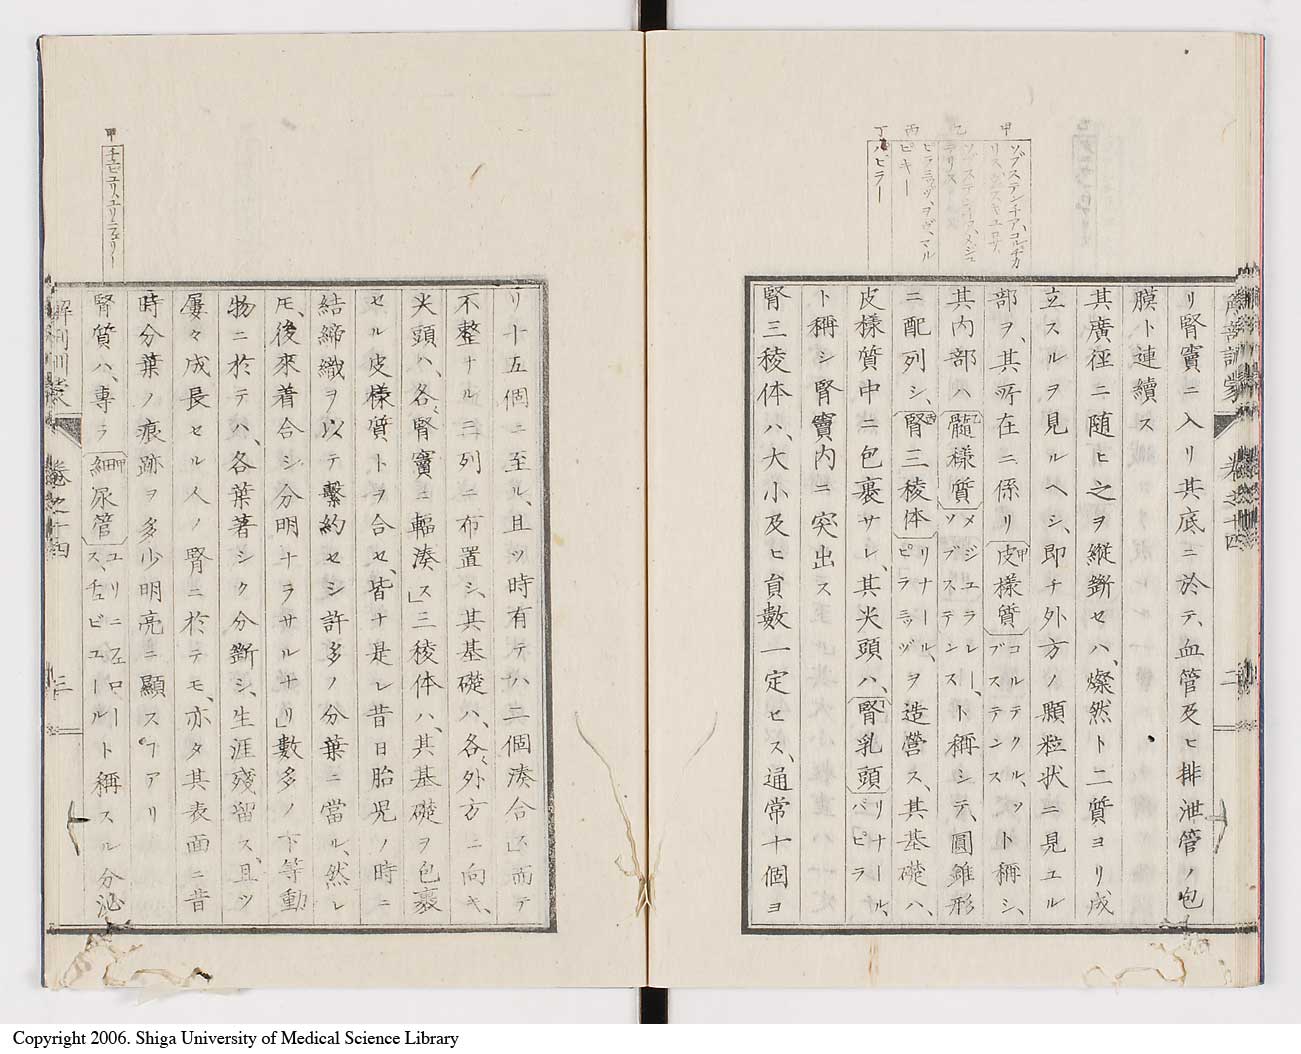 甲
ソブステンチア、コルチカ
リス、
乙
ソブステンチア、メジュ
ラリス
丙
ピラミッツ、ヲヴ、マル
ピキー
丁
パピラー
解剖訓蒙
卷之十四
二
リ腎竇ニ入リ其底ニ於テ、血管及ヒ排泄管ノ包
膜ト連續ス
其廣徑ニ随ヒ之ヲ縱斷セハ、燦然ト二質ヨリ成
立スルヲ見ルヘシ、即チ外方ノ顆粒状ニ見エル
部ヲ、其所在ニ係リ甲皮様質コルテクル、ソブステンスト稱シ、
其内部ハ乙髓様質メジュラレー、ソブステンスト稱シテ、圓錐形
ニ配列シ、丙腎三稜体リナール、ピラミッヅヲ造營ス、其基礎ハ、
皮様質中ニ包裹サレ、其尖頭ハ、丁腎乳頭リナール、パピラ
ト稱シ腎竇内ニ突出ス
腎三稜体ハ、大小及ヒ員數一定セス、通常十個ヨ
リ十五個ニ至ル、且ツ時有テハ二個湊合シ而テ
不整ナル三列ニ布置シ、其基礎ハ、各々外方ニ向キ、
尖頭ハ、各々腎竇ニ輻湊ス」三稜体ハ、其基礎ヲ包裹
セル皮様質トヲ合セ、皆ナ是レ昔日胎児ノ時ニ
結締織ヲ以テ繫約セシ許多ノ分葉ニ當ル、然レ
𪜈、後來着合シ分明ナラサルナリ」數多ノ下等動
物ニ於テハ、各葉著シク分斷シ、生涯殘留ス、且ツ
屢々成長セル人ノ腎ニ於テモ、亦タ其表面ニ昔
時分葉ノ痕跡ヲ多少明亮ニ顯スヿアリ
腎質ハ、專ラ甲細尿管ユリニフェロース、チュビュールト稱スル分泌
甲
チュビュリ、ユリニフェリー
解剖訓蒙
卷之十四
三
Copyright 2006. Shiga University of Medical Science Library